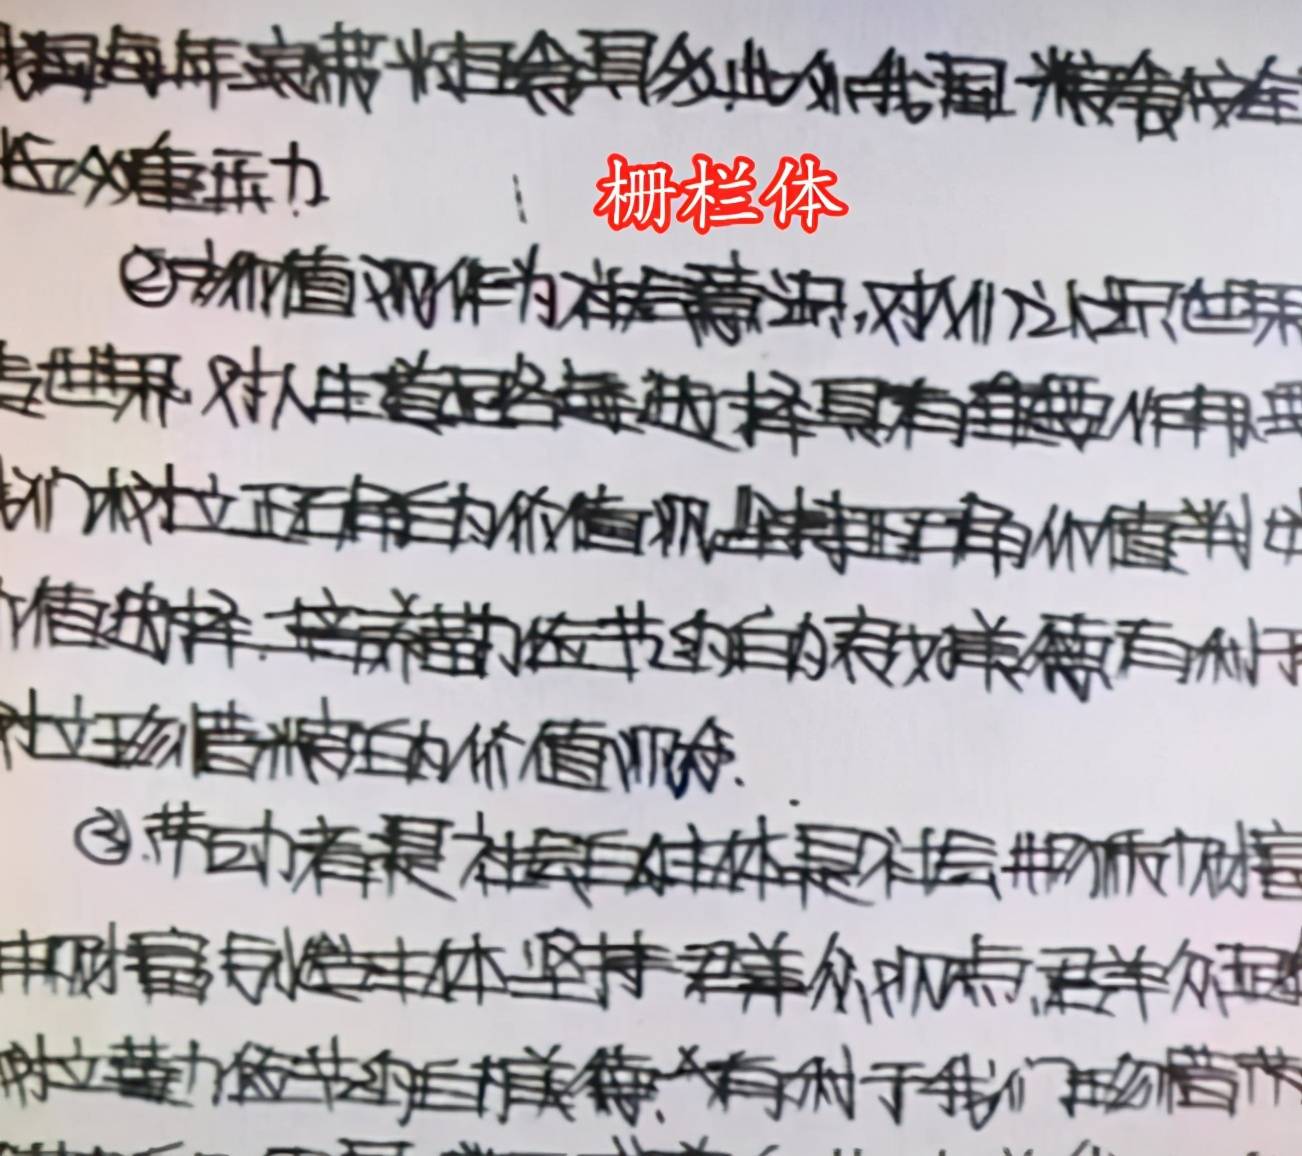 我国每年浪费粮食具多,此外我国粮食安全
长众重压力
栅栏体
②价值观作为社会意识,对人们认识世界
造世界.对人生道路的选择具有重要作用.要
我们树立正确的价值观坚持正确价值判
价值选择.培养勤俭节约的良好美德有利于
树立珍惜粮食的价值观念.
③.劳动者是社会的主体是社会物质财富
财富创造主体坚持群众观点.群众是
树立勤俭节约的美德.有利于我们珍惜劳